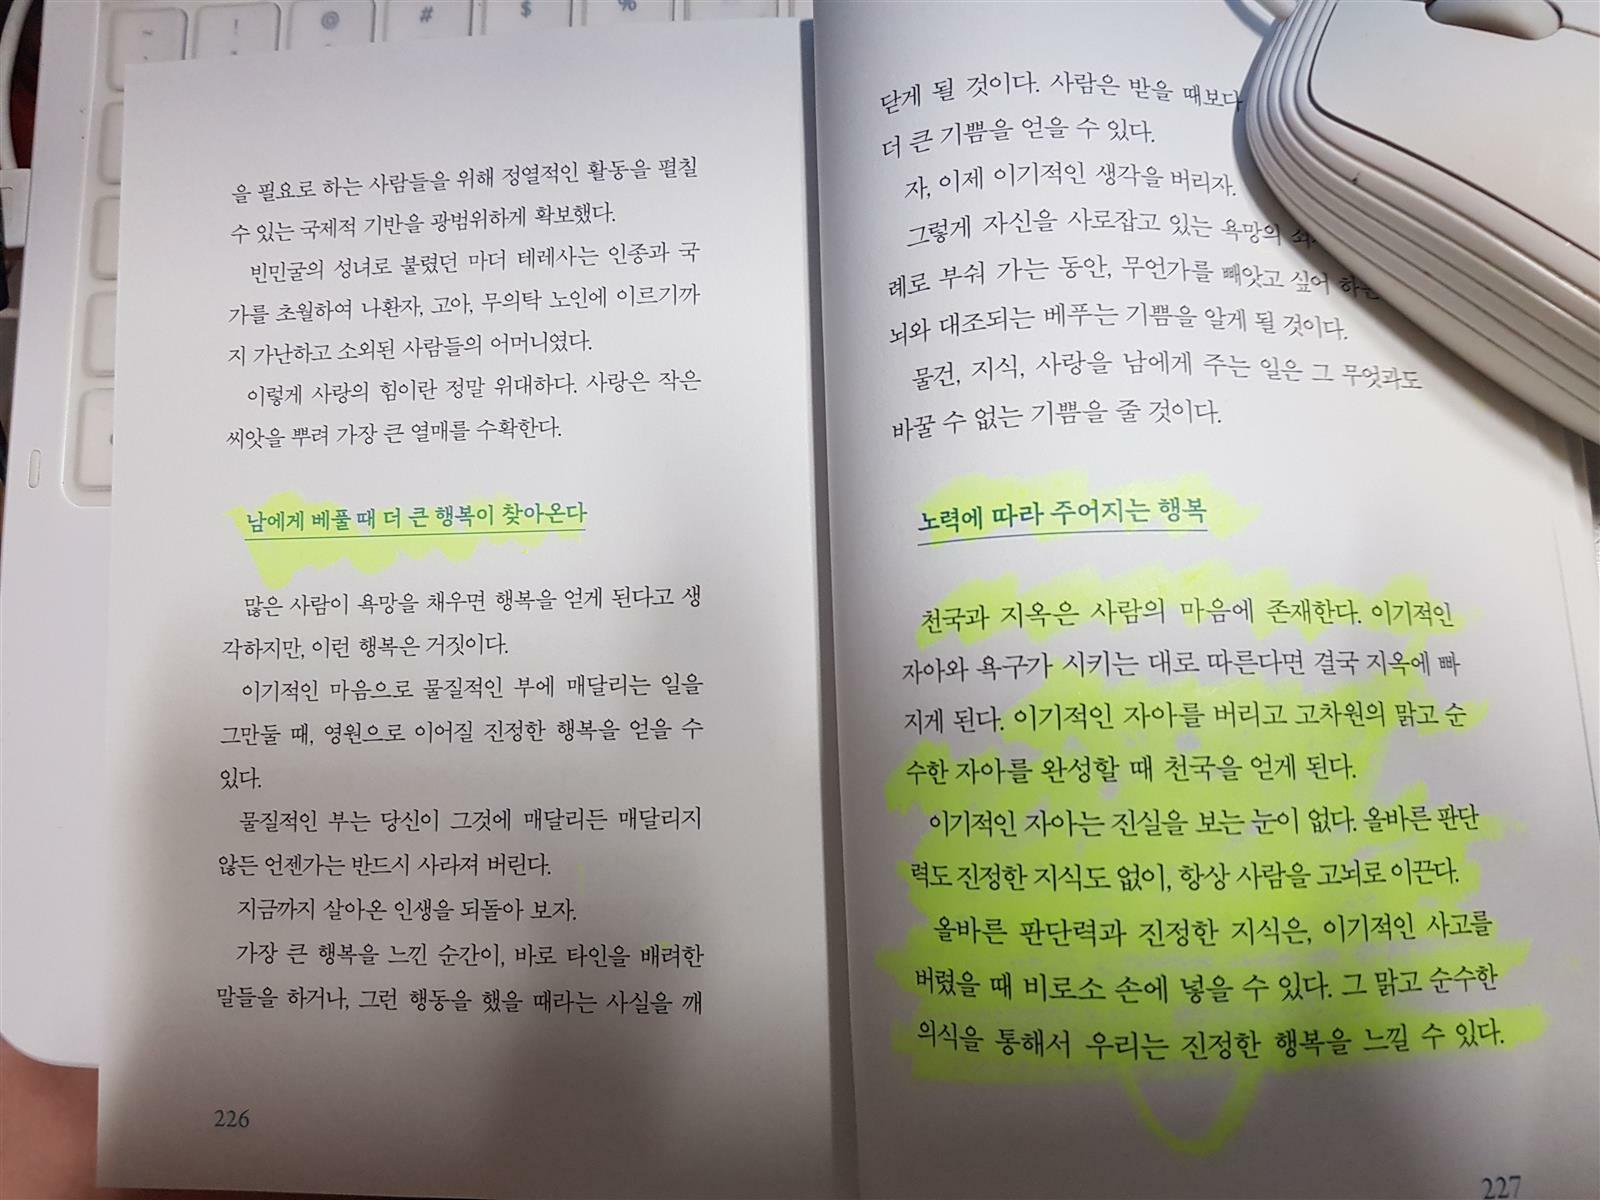 ~ ! @ # $ %
을 필요로 하는 사람들을 위해 정열적인 활동을 펼칠
수 있는 국제적 기반을 광범위하게 확보했다.
빈민굴의 성녀로 불렸던 마더 테레사는 인종과 국
가를 초월하여 나환자, 고아, 무의탁 노인에 이르기까
지 가난하고 소외된 사람들의 어머니였다.
이렇게 사랑의 힘이란 정말 위대하다. 사랑은 작은
씨앗을 뿌려 가장 큰 열매를 수확한다.
남에게 베풀 때 더 큰 행복이 찾아온다
많은 사람이 욕망을 채우면 행복을 얻게 된다고 생
각하지만, 이런 행복은 거짓이다.
이기적인 마음으로 물질적인 부에 매달리는 일을
그만둘 때, 영원으로 이어질 진정한 행복을 얻을 수
있다.
물질적인 부는 당신이 그것에 매달리든 매달리지
않든 언젠가는 반드시 사라져 버린다.
지금까지 살아온 인생을 되돌아 보자.
가장 큰 행복을 느낀 순간이, 바로 타인을 배려한
말들을 하거나, 그런 행동을 했을 때라는 사실을 깨
226
닫게 될 것이다. 사람은 받을 때보다
더 큰 기쁨을 얻을 수 있다.
자, 이제 이기적인 생각을 버리자.
그렇게 자신을 사로잡고 있는 욕망의
례로 부숴 가는 동안, 무언가를 빼앗고 싶어 하는
뇌와 대조되는 베푸는 기쁨을 알게 될 것이다.
물건, 지식, 사랑을 남에게 주는 일은 그 무엇과도
바꿀 수 없는 기쁨을 줄 것이다.
노력에 따라 주어지는 행복
천국과 지옥은 사람의 마음에 존재한다. 이기적인
자아와 욕구가 시키는 대로 따른다면 결국 지옥에 빠
지게 된다. 이기적인 자아를 버리고 고차원의 맑고 순
수한 자아를 완성할 때 천국을 얻게 된다.
이기적인 자아는 진실을 보는 눈이 없다. 올바른 판단
력도 진정한 지식도 없이, 항상 사람을 고뇌로 이끈다.
올바른 판단력과 진정한 지식은, 이기적인 사고를
버렸을 때 비로소 손에 넣을 수 있다. 그 맑고 순수한
의식을 통해서 우리는 진정한 행복을 느낄 수 있다.
227